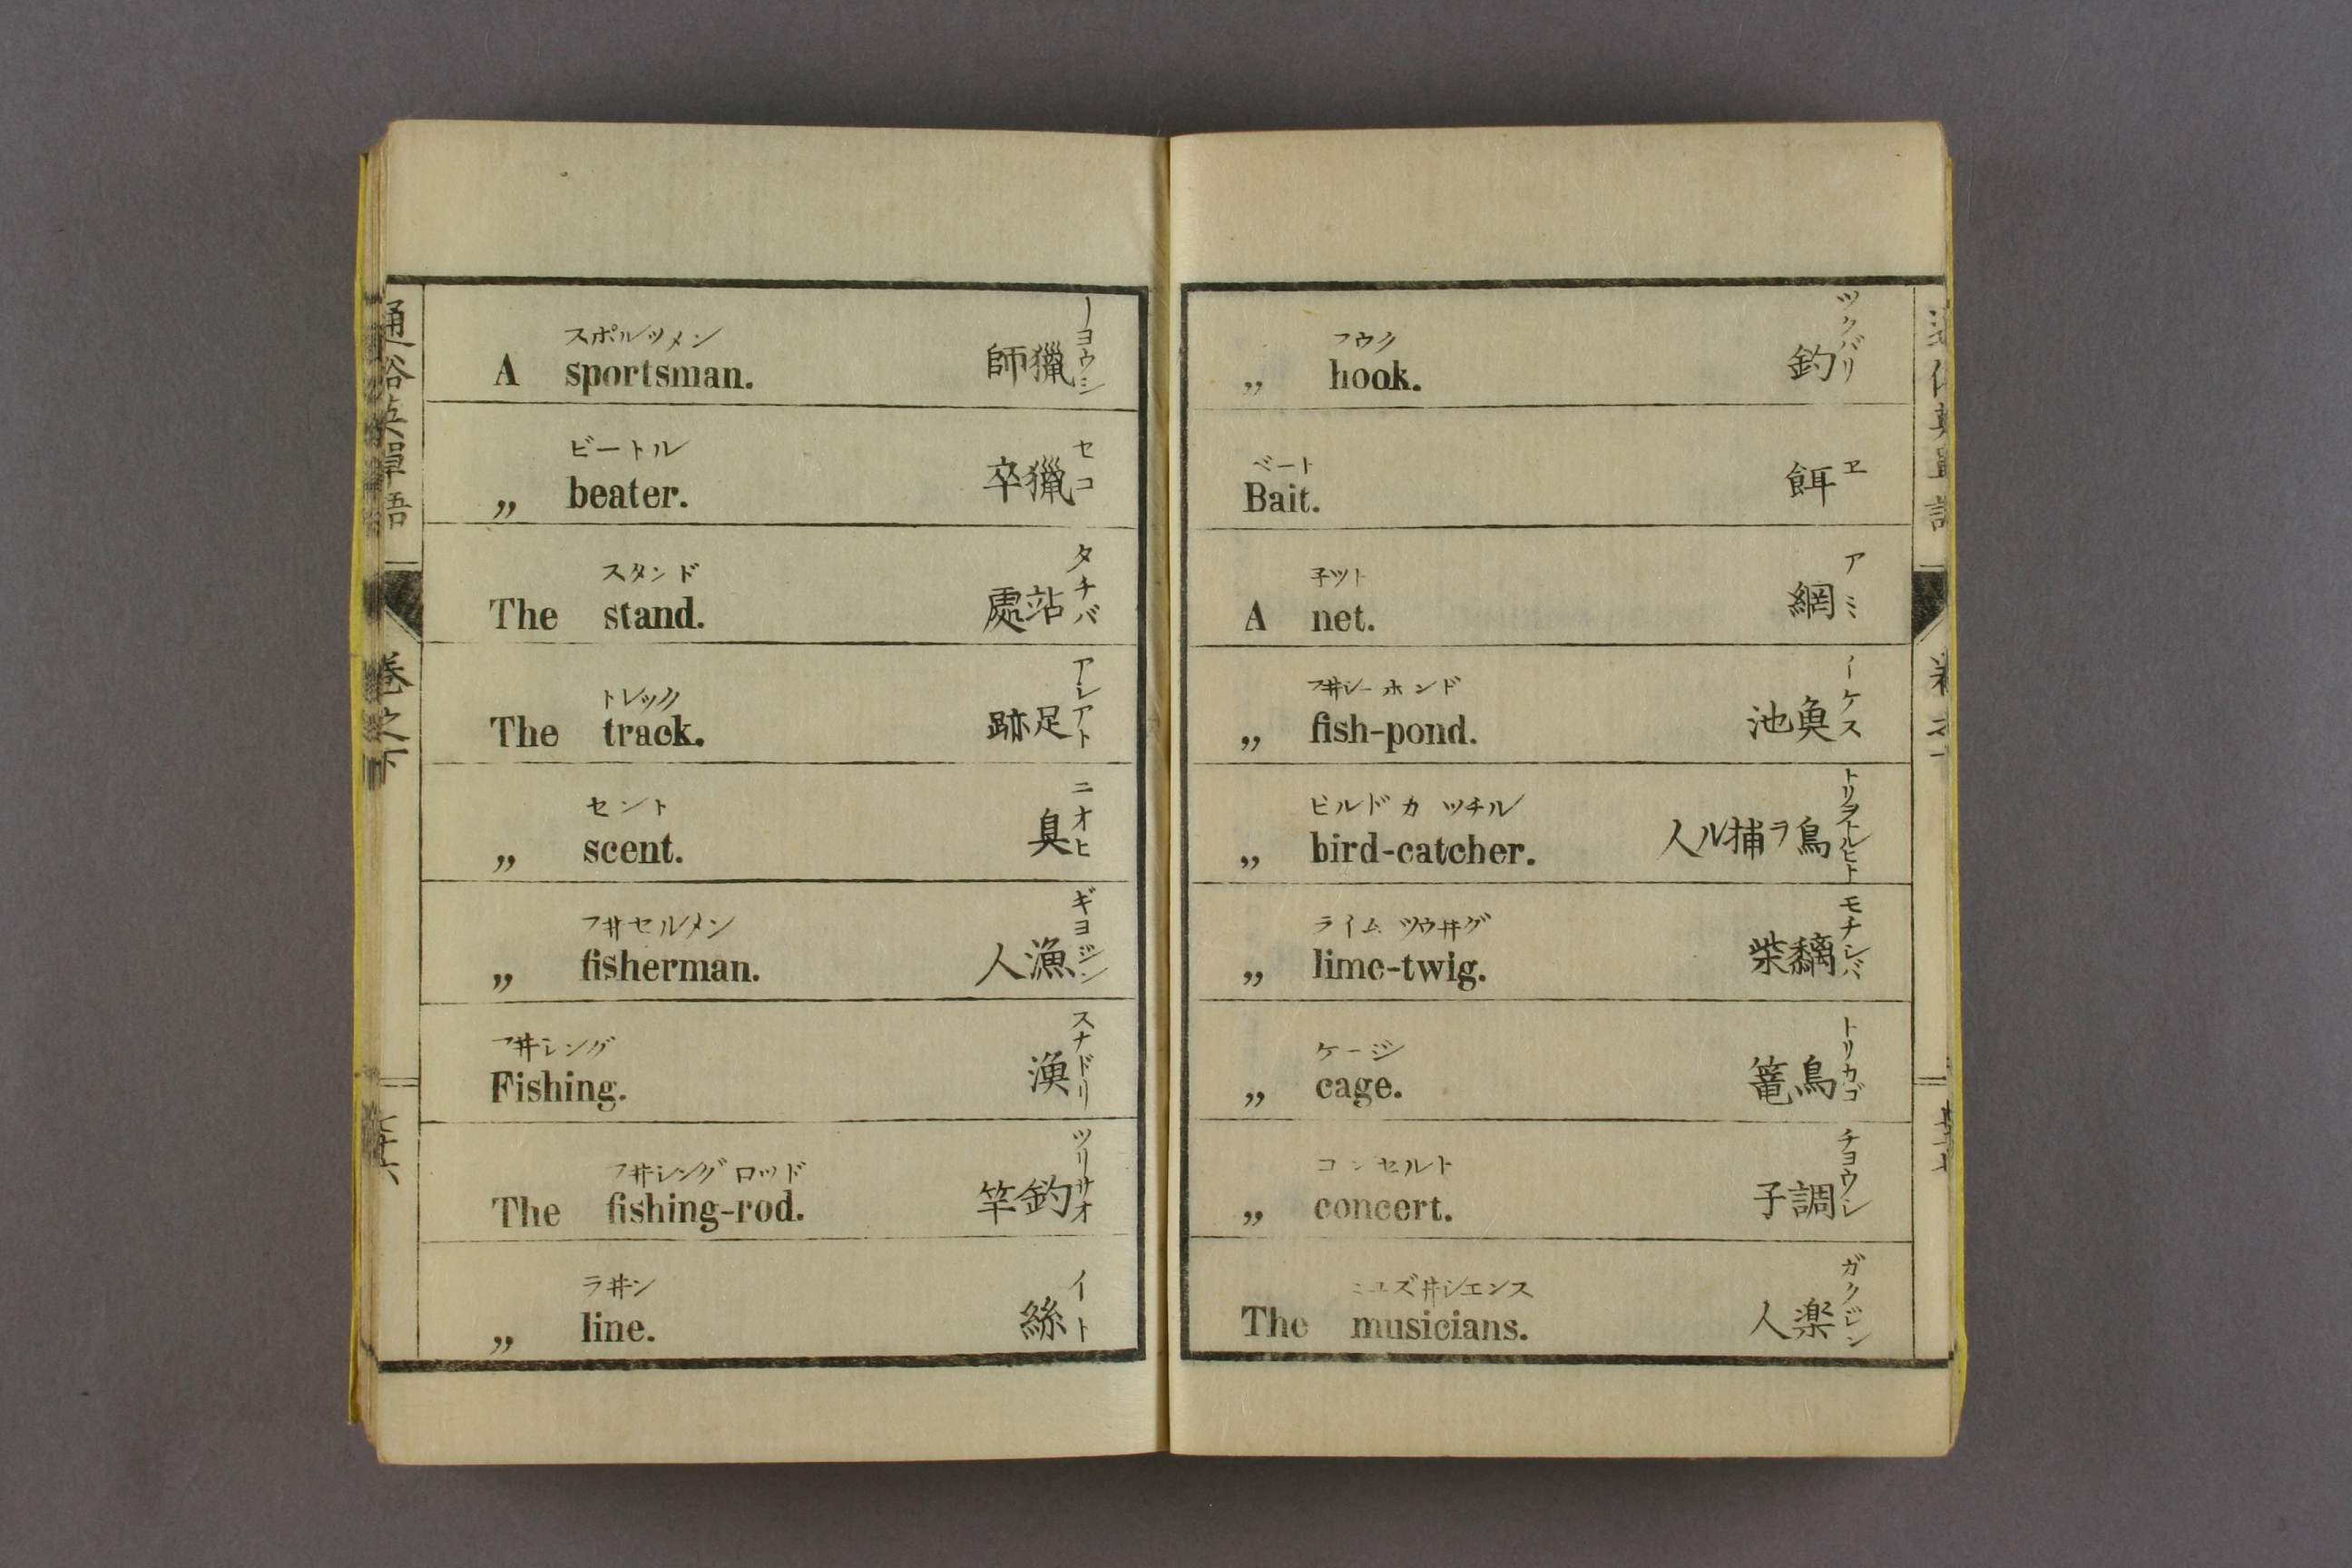 通俗英單語
卷之下
スポルツメン
A sportsman. 師獵
ーヨウシ
ビートル
„ beater. 卒獵
セコ
スタンド
The stand. 處站
タチバ
トレツク
The track. 跡足
アシアト
セント
„ scent. 臭
ニオヒ
フ井セルメン
„ fisherman. 人漁
ギヨジン
フ井シング
Fishing. 漁
スナドリ
フ井シングロッド
The fishing-rod. 竿釣
ツリサオ
ラ井ン
„ line. 絲
イト
フウク
„ hook. 釣
ツクバリ
ベート
Bait. 餌
ヱ
子ツト
A net. 網
アミ
フ井シーホンド
„ fish-pond. 池魚
イケス
ビルドカツチル
„ bird-catcher. 人ル捕ヲ鳥
トリヲトルヒト
ライムツウ井グ
„ lime-twig. 柴黐
モチシバ
ケージ
„ cage. 篭鳥
トリカゴ
コンセルト
„ concert. 子調
チヨウシ
ミユズ井シエンス
The musicians. 人楽
ガクジン